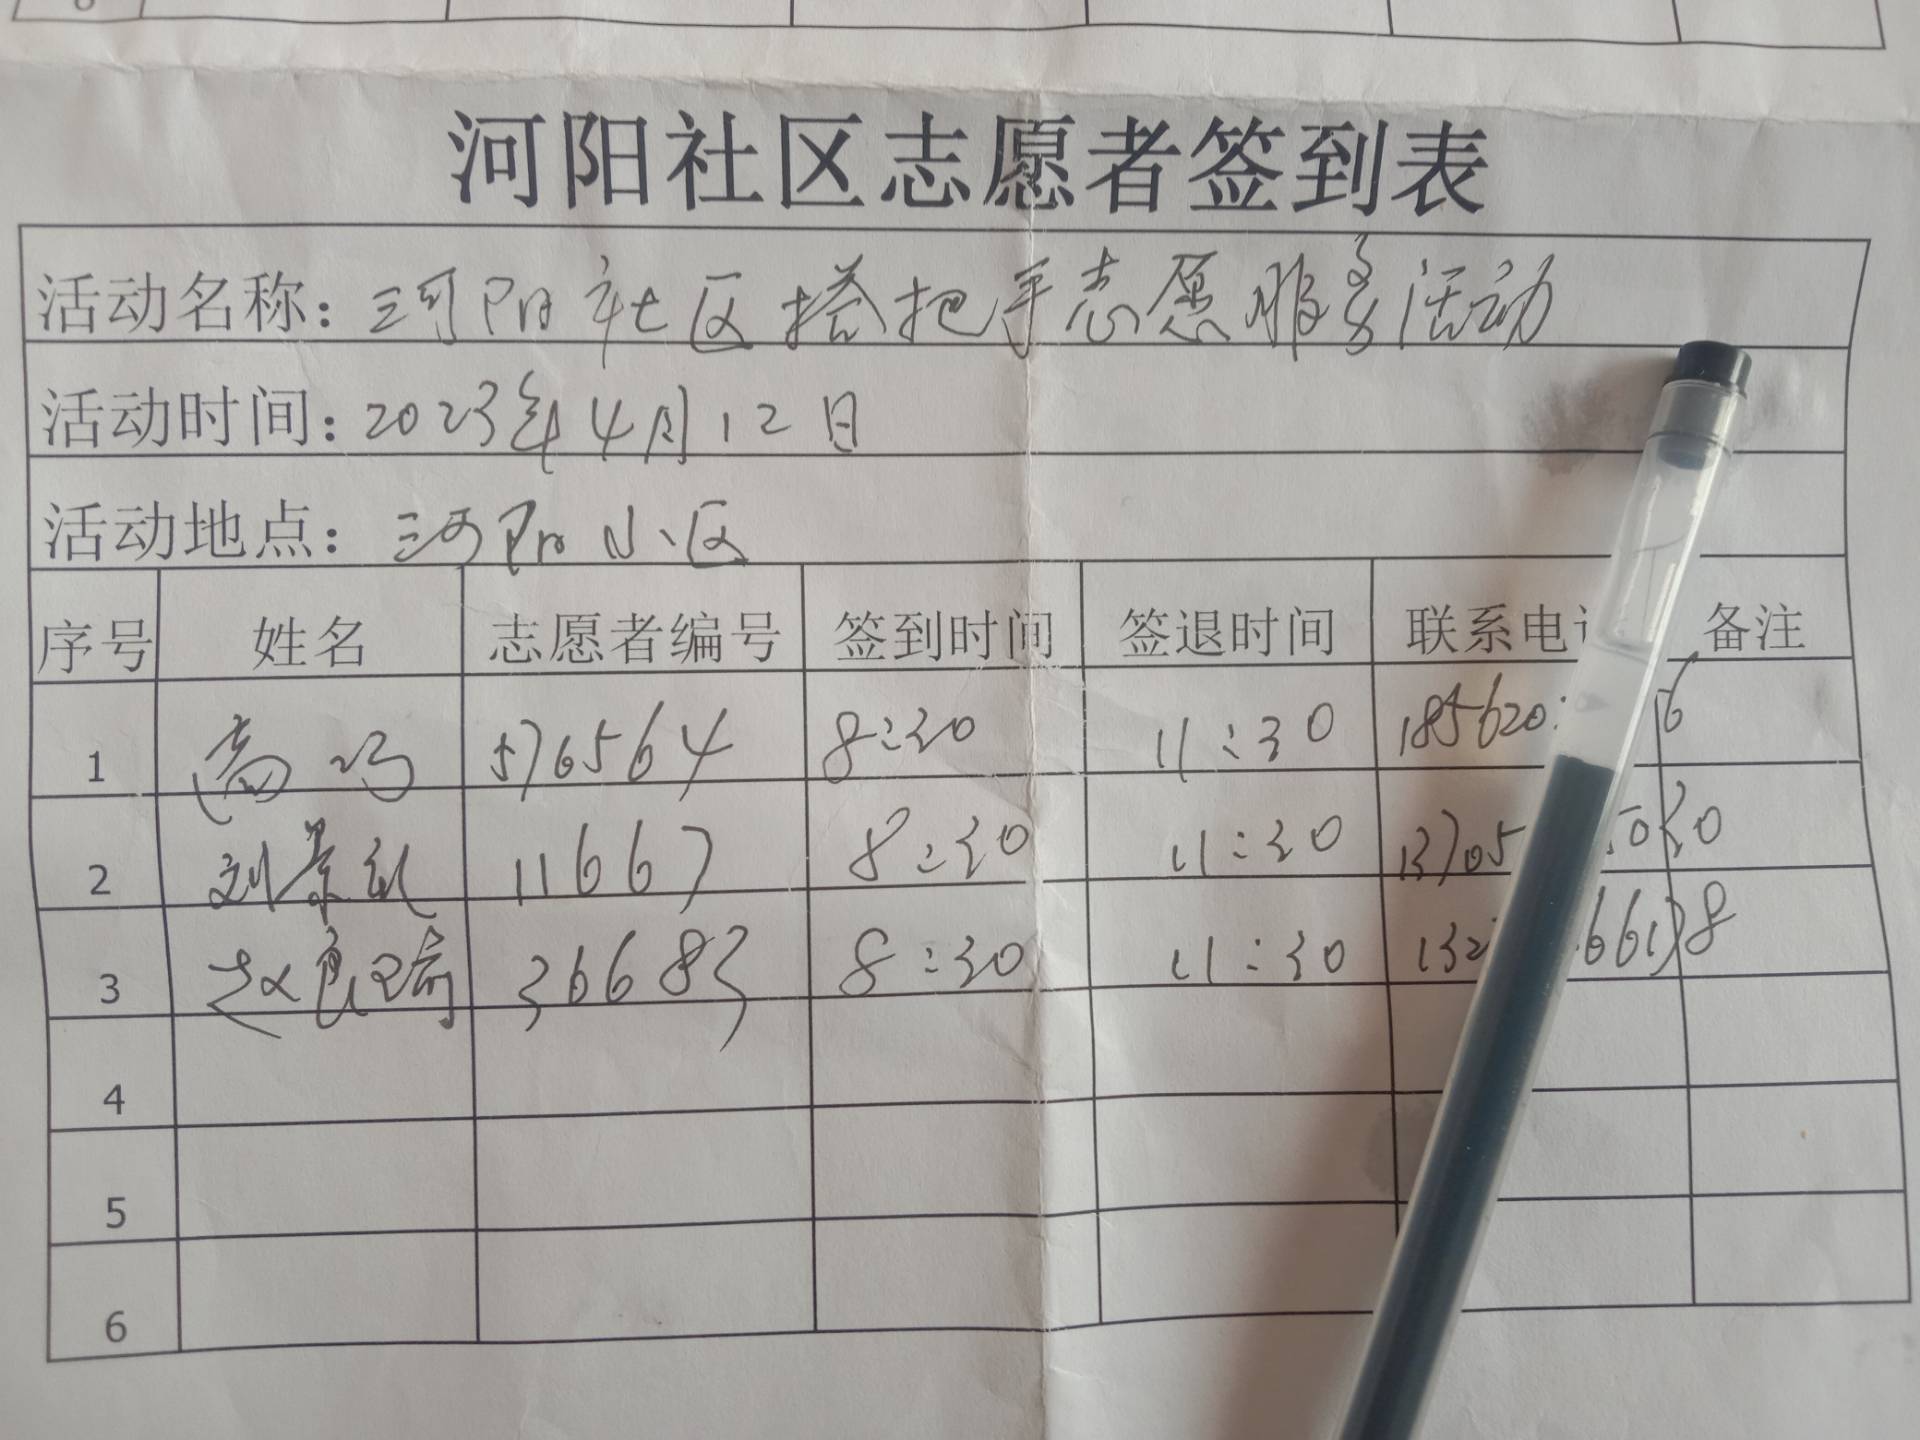 河阳社区志愿者签到表
活动名称：河阳社区搭把手志愿服务活动
活动时间：2023年4月12日
活动地点：河阳小区
序号 姓名 志愿者编号 签到时间 签退时间 联系电 备注
1 高 576564 8:30 11:30 185620 6
2 刘景 11667 8:30 11:30 13705 030
3 赵良瑜 36683 8:30 11:30 132 66138
4
5
6